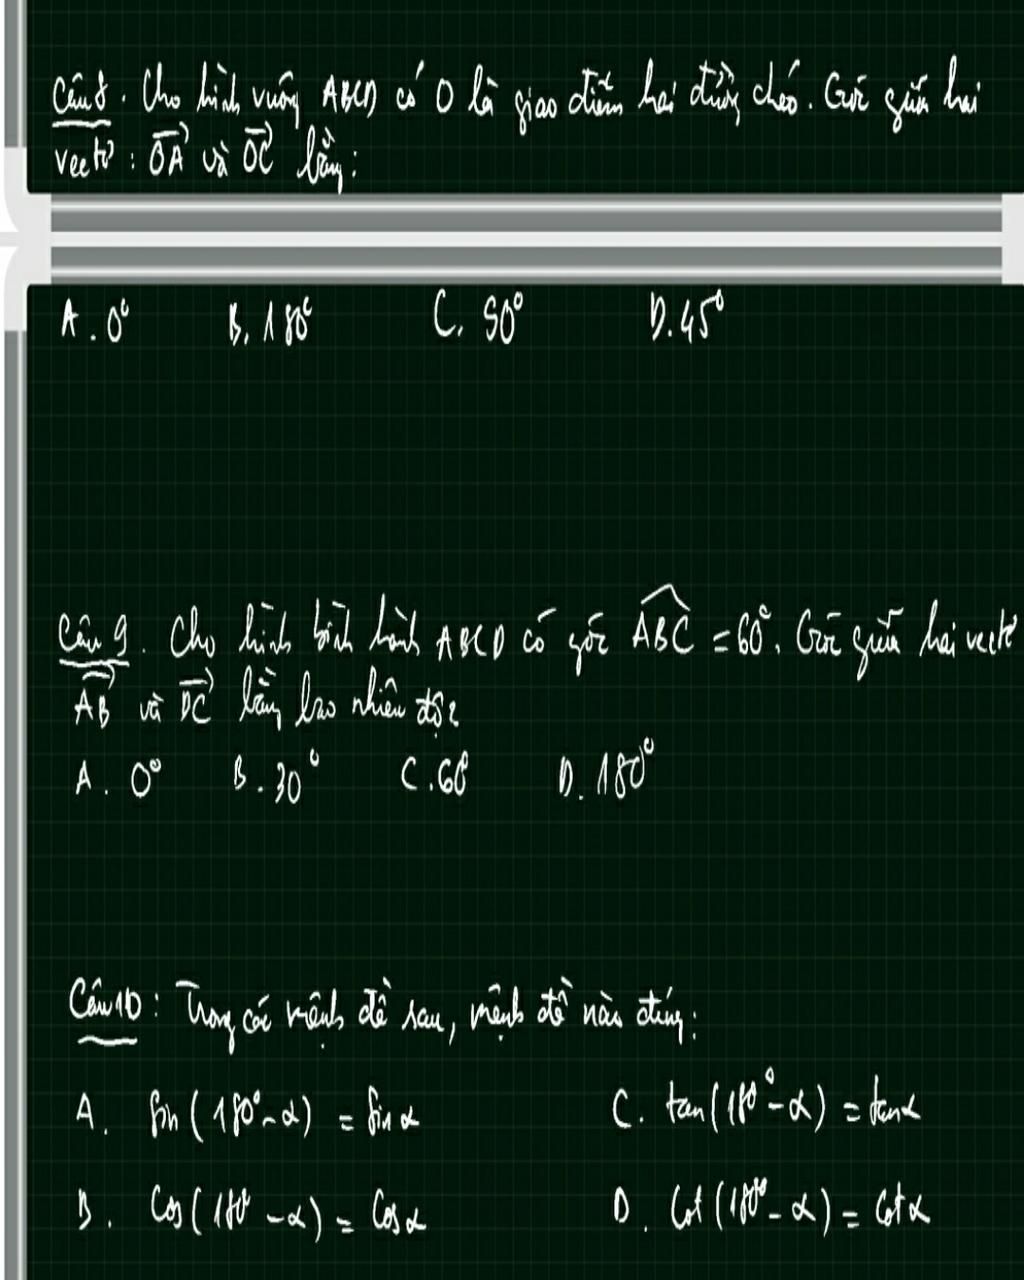 Câu 8. Cho hình vuông ABCD có O là giao điểm hai đường chéo. Góc giữa hai
vectơ: OA và OC bằng:
A. 0° B. 180° C. 90° D. 45°
Câu 9. Cho hình bình hành ABCD có góc ABC = 60°. Góc giữa hai vectơ
AB và DC bằng bao nhiêu độ?
A. 0° B. 30° C. 60° D. 180°
Câu 10: Trong các mệnh đề sau, mệnh đề nào đúng:
A. sin(180° - α) = sin α C. tan(180° - α) = tan α
B. Cos(180° - α) = Cos α D. Cot(180° - α) = Cot α